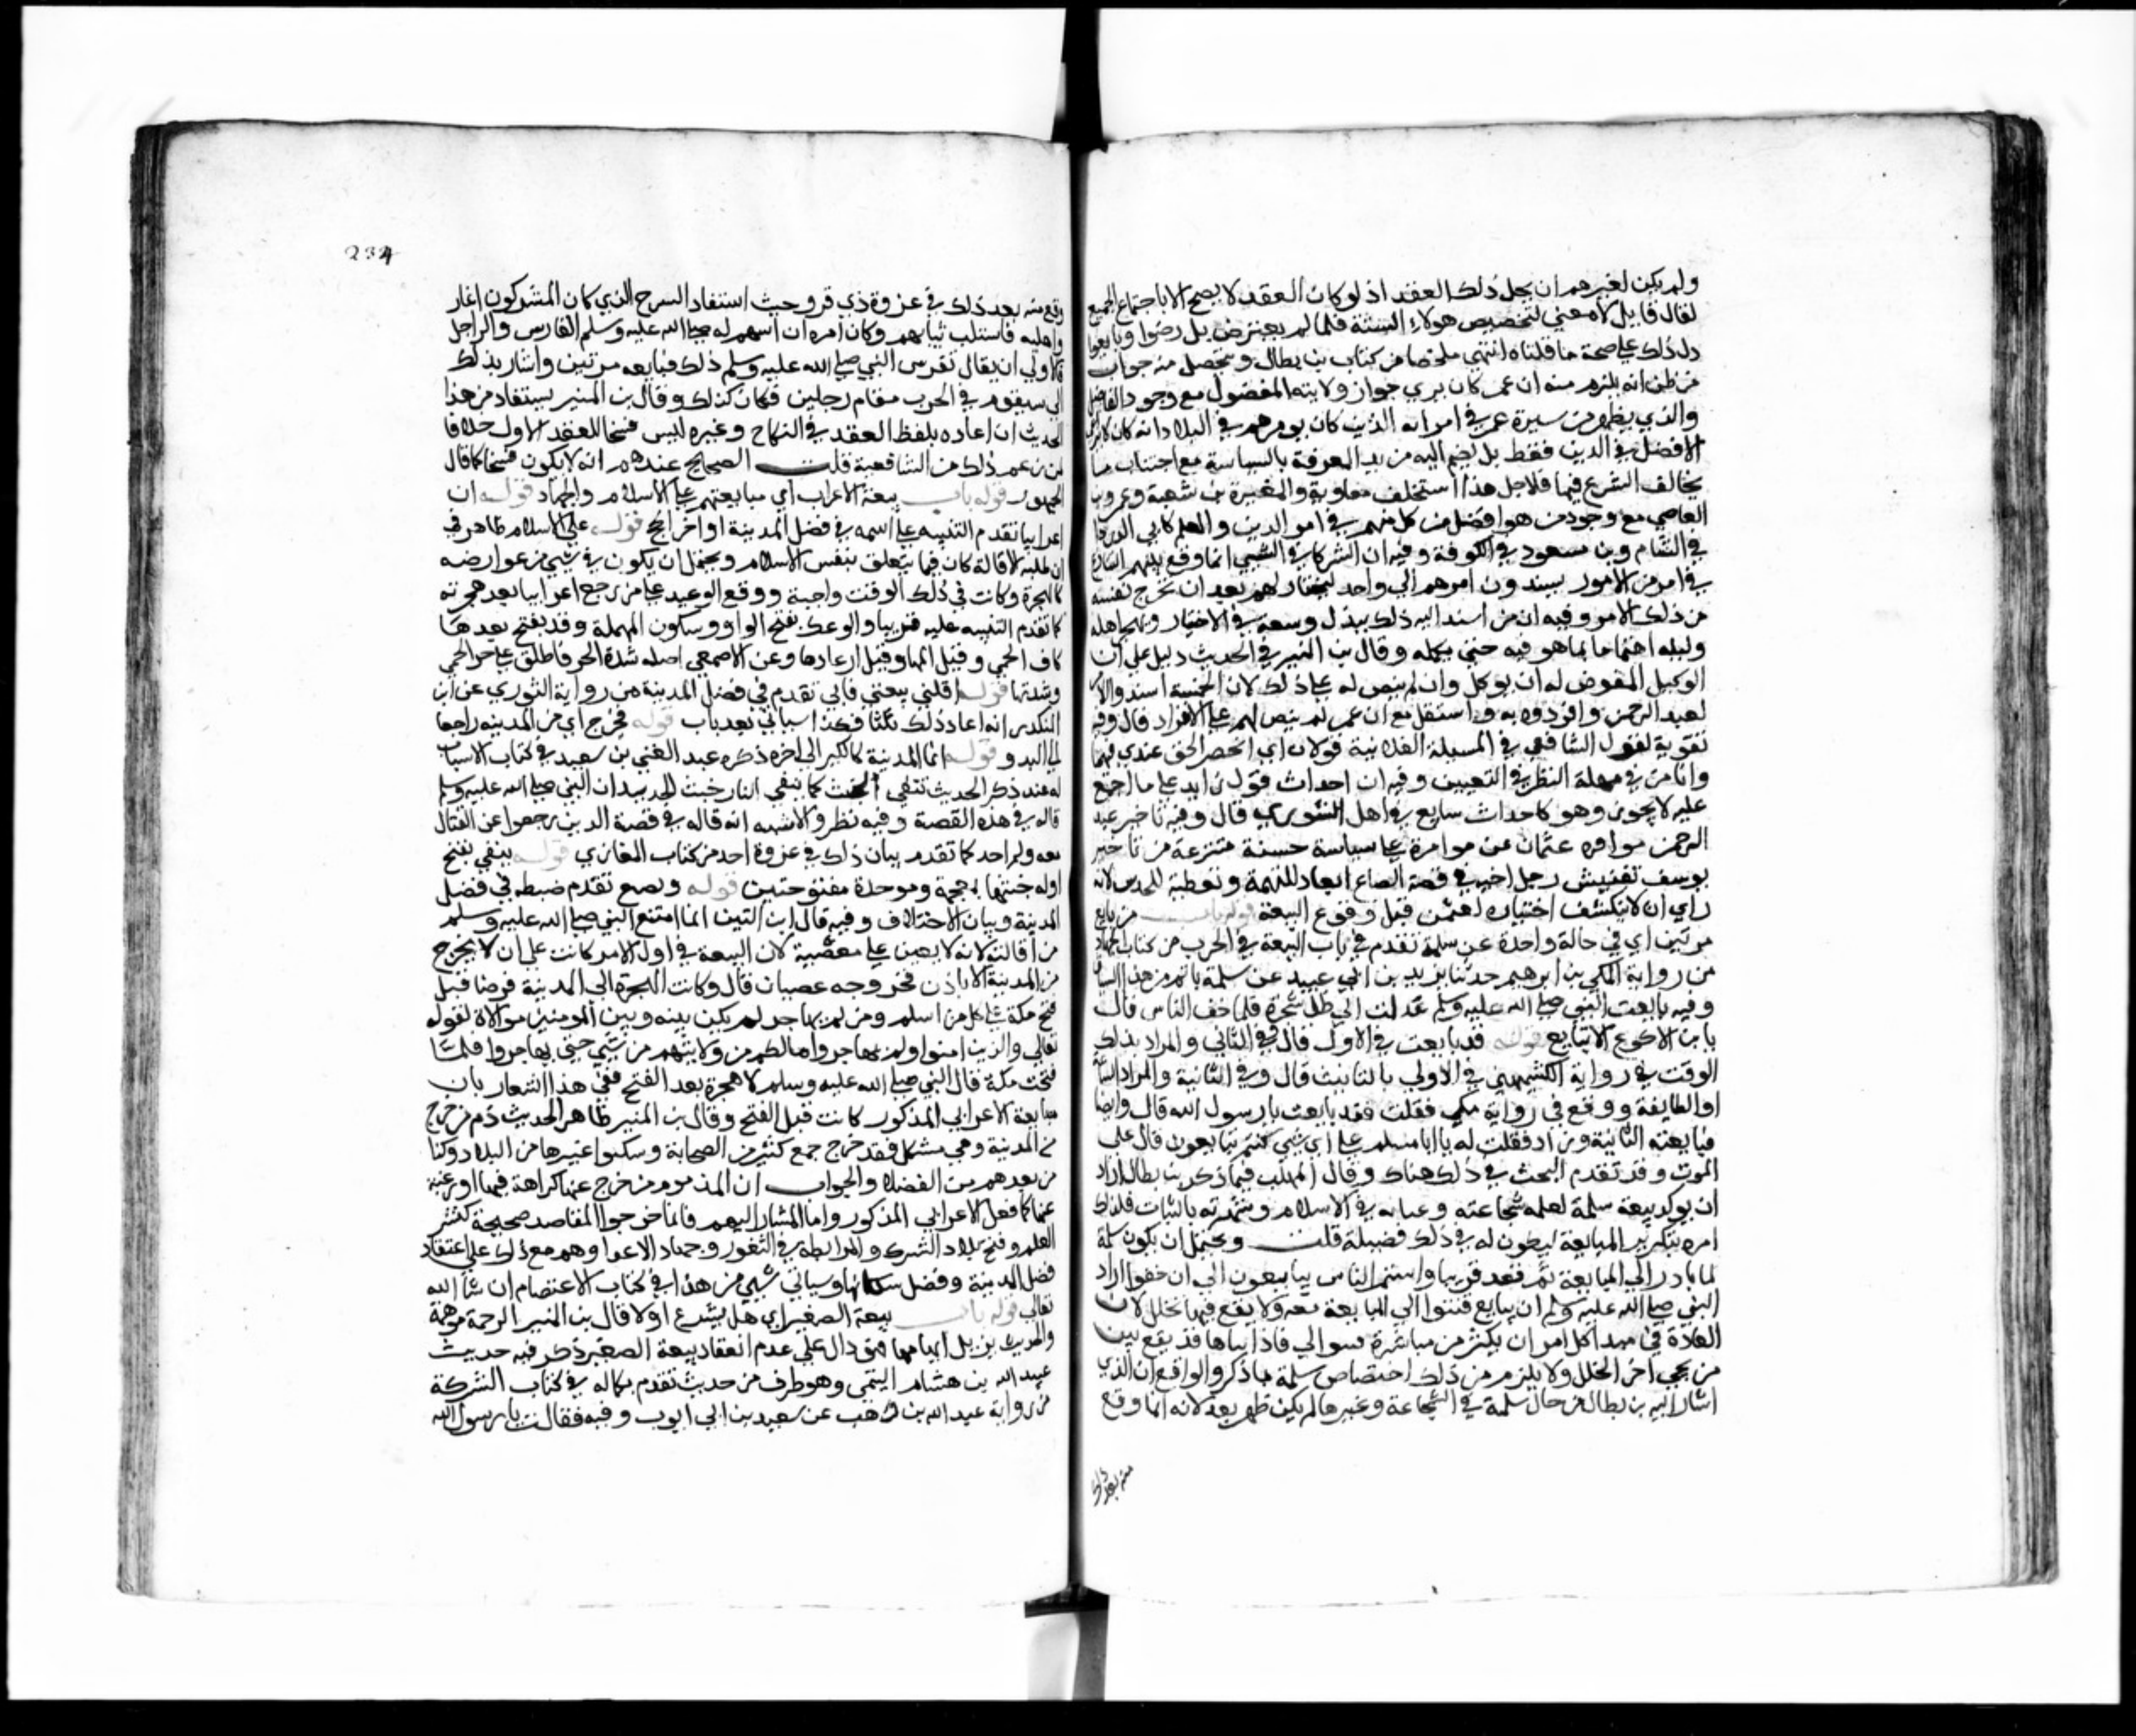 ولم يكن لغيرهم ان يحل ذلك العقد اذ لو كان العقد لا يصح الا باجتماع الجميع
لقال قايل لا معني لتخصيص هولاء الستة فلما لم يعترض بل رضوا وبايعوا
دل ذلك علي صحة ما قلناه انتهي ملخصا من كتاب بن بطال ويتحصل منه جواب
من ظن انه يلزم منه ان عمر كان يري جواز ولايته المفضول مع وجود الفاضل
والذي يظهر من سيرة عمر في امرائه الذين كان يومرهم في البلاد انه كان لا يراعي
الافضل في الدين فقط بل يضم اليه مزيد المعرفة بالسياسة مع اجتناب ما
يخالف الشرع فيها فلاجل هذا استخلف معاوية والمغيرة بن شعبة وعمرو بن
العاصي مع وجود من هو افضل من كل منهم في امر الدين والعلم كابي الدردا
في الشام وبن مسعود في الكوفة وفيه ان الشركا في الشيي اذا وقع بينهم التنازع
في امر من الامور يسندون امرهم الي واحد ليختار لهم بعد ان يخرج نفسه
من ذلك الامر وفيه ان من اسند اليه ذلك يبذل وسعه في الاختيار ويهجر اهله
وليله اهتماما بما هو فيه حتي يكمله وقال بن المنير في الحديث دليل علي ان
الوكيل المفوض له ان يوكل وان لم ينص له علي ذلك لان الخمسة اسندوا الامر
لعبد الرحمن وافردوه به فاستقل مع ان عمر لم ينص لهم علي الانفراد قال وفيه
تقوية لقول الشافعي في المسيلة الفلانية قولان اي انحصر الحق عندي فيهما
وانا من في مهلة النظر في التعيين وفيه ان احداث قول زايد علي ما اجتمع
عليه لا يجوز وهو كاحداث سابع في اهل الشوري قال وفيه تاخير عبد
الرحمن موامره عثمان عن موامرة علي سياسة حسنة منتزعة من تاخير
يوسف تفتيش رجل اخيه في قصة الصاع ابعادا للتهمة وتغطية للحدس لانه
راي ان لا ينكشف اختياره لعثمن قبل وقوع البيعة قوله باب من بايع
مرتين اي في حالة واحدة عن سلمة تقدم في باب البيعة في الحرب من كتاب الجهاد
من رواية المكي بن ابرهيم حدثنا يزيد بن ابي عبيد عن سلمة باتم من هذا السياق
وفيه بايعت النبي صلي الله عليه وسلم ثم عدلت الي ظل شجرة فلما خف الناس قال
يا بن الاكوع الا تبايع قوله قد بايعت في الاول قال وفي الثاني والمراد بذلك
الوقت وفي رواية الكشميهني في الاولي بالتانيث قال وفي الثانية والمراد الساعة
او الطايفة ووقع في رواية مكي فقلت قد بايعت يا رسول الله قال وايضا
فبايعته الثانية وزاد فقلت له يا ابا مسلم علي اي شيي كنتم تبايعون قال علي
الموت وقد تقدم البحث في ذلك هناك وقال المهلب فيما ذكر بن بطال اراد
ان يوكد بيعة سلمة لعلمه بشجاعته وعنايه في الاسلام وشهرته بالثبات فلذلك
امره بتكرير المبايعة ليكون له في ذلك فضيلة قلت ويحتمل ان يكون سلمة
لما بادر الي المبايعة ثم قعد قريبا واستمر الناس يبايعون الي ان خفوا اراد
النبي صلي الله عليه وسلم ان يبايع فتتوالي المبايعة معه ولا يقع فيها تخلل لان
العادة في مبدا كل امر ان يكثر من مباشره فيتوالي فاذا تناهي قد يقع بين
من يجي اخرا تخلل ولا يلزم من ذلك اختصاص سلمة بما ذكر والواقع ان الذي
اشار اليه بن بطال من حال سلمة في الشجاعة وغيرها لم يكن ظهر بعد لانه انما وقع
منه بعد ذلك
234
وقع منه بعد ذلك في غزوة ذي قرد حيث استنفاد السرح الذي كان المشركون اغار
واعليه فاستلب ثيابهم وكان امره ان اسهم له صلي الله عليه وسلم الفارس والراجل
فالاولي ان يقال تفرس النبي صلي الله عليه وسلم ذلك فبايعه مرتين واشار بذلك
الي سيقوم في الحرب مقام رجلين فكان كذلك وقال بن المنير يستفاد من هذا
الحديث ان اعاده بلفظ العقد في النكاح وغيره ليس فسخا للعقد الاول خلافا
لمن زعم ذلك من الشافعية قلت الصحيح عندهم انه لا يكون فسخا كما قال
الجمهور قوله باب بيعة الاعراب اي مبايعتهم علي الاسلام والجهاد قوله ان
اعرابيا تقدم التنبيه علي اسمه في فضل المدينة اواخر الحج قوله علي الاسلام ظاهر في
ان طلبه الاقالة كان فيما يتعلق بنفس الاسلام ويحتمل ان يكون في شيي من عوارضه
كالهجرة وكانت في ذلك الوقت واجبة ووقع الوعيد علي من رجع اعرابيا بعد هجرته
كما تقدم التنبيه عليه قريبا والوعك بفتح الواو وسكون المهملة وقد تفتح بعدها
كاف الحمي وقيل المها وقيل ارعادها وعن الاصمعي اصله شدة الحر فاطلق علي حر الحمي
وشدتها قوله اقلني بيعتي فابي تقدم في فضل المدينة من رواية الثوري عن ابن
المنكدر انه اعاد ذلك ثلاثا وكذا سياتي بعد باب قوله فخرج اي من المدينة راجعا
الي البدو قوله انما المدينة كالكير الي اخره ذكره عبد الغني بن سعيد في كتاب الاسباب
له عند ذكر الحديث تنفي الخبث كما ينفي النار خبث الحديد ان النبي صلي الله عليه وسلم
قاله في هذه القصة وفيه نظر والاشبه انه قاله في قصة الذين رجعوا عن القتال
معه يوم احد كما تقدم بيان ذلك في غزوة احد من كتاب المغازي قوله ينفي بفتح
اوله خبثها بمعجمة وموحدة مفتوحتين قوله وينصع تقدم ضبطه في فضل
المدينة وبيان الاختلاف وفيه قال ابن التين انما امتنع النبي صلي الله عليه وسلم
من اقالته لانه لا يعين علي معصية لان البيعة في اول الامر كانت علي ان لا يخرج
من المدينة الا باذن فخروجه عصيان قال وكانت الهجرة الي المدينة فرضا قبل
فتح مكة علي كل من اسلم ومن لم يهاجر لم يكن بينه وبين المومنين موالاة لقوله
تعالي والذين امنوا ولم يهاجروا ما لكم من ولايتهم من شيي حتي يهاجروا فلما
فتحت مكة قال النبي صلي الله عليه وسلم لا هجرة بعد الفتح ففي هذا اشعار بان
مبايعة الاعرابي المذكور كانت قبل الفتح وقال بن المنير ظاهر الحديث ذم من خرج
من المدينة وهي مشكل فقد خرج جمع كثير من الصحابة وسكنوا غيرها من البلاد وكذا
من بعدهم من الفضلا والجواب ان المذموم من خرج عنها كراهة فيها او رغبة
عنها كما فعل الاعرابي المذكور واما المشار اليهم فانما خرجوا لمقاصد صحيحة كنشر
العلم وفتح بلاد الشرك والمرابطة في الثغور وجهاد الاعدا وهم مع ذلك علي اعتقاد
فضل المدينة وفضل سكناها وسياتي شيي من هذا في كتاب الاعتصام ان شا الله
تعالي قوله باب بيعة الصغير اي هل يشرع او لا قال بن المنير الترجمة موهمة
والحديث يزيل ايهامها فهو دال علي عدم انعقاد بيعة الصغير ذكر فيه حديث
عبد الله بن هشام التيمي وهو طرف من حديث تقدم بكماله في كتاب الشركة
من رواية عبد الله بن وهب عن سعيد بن ابي ايوب وفيه فقالت يا رسول الله